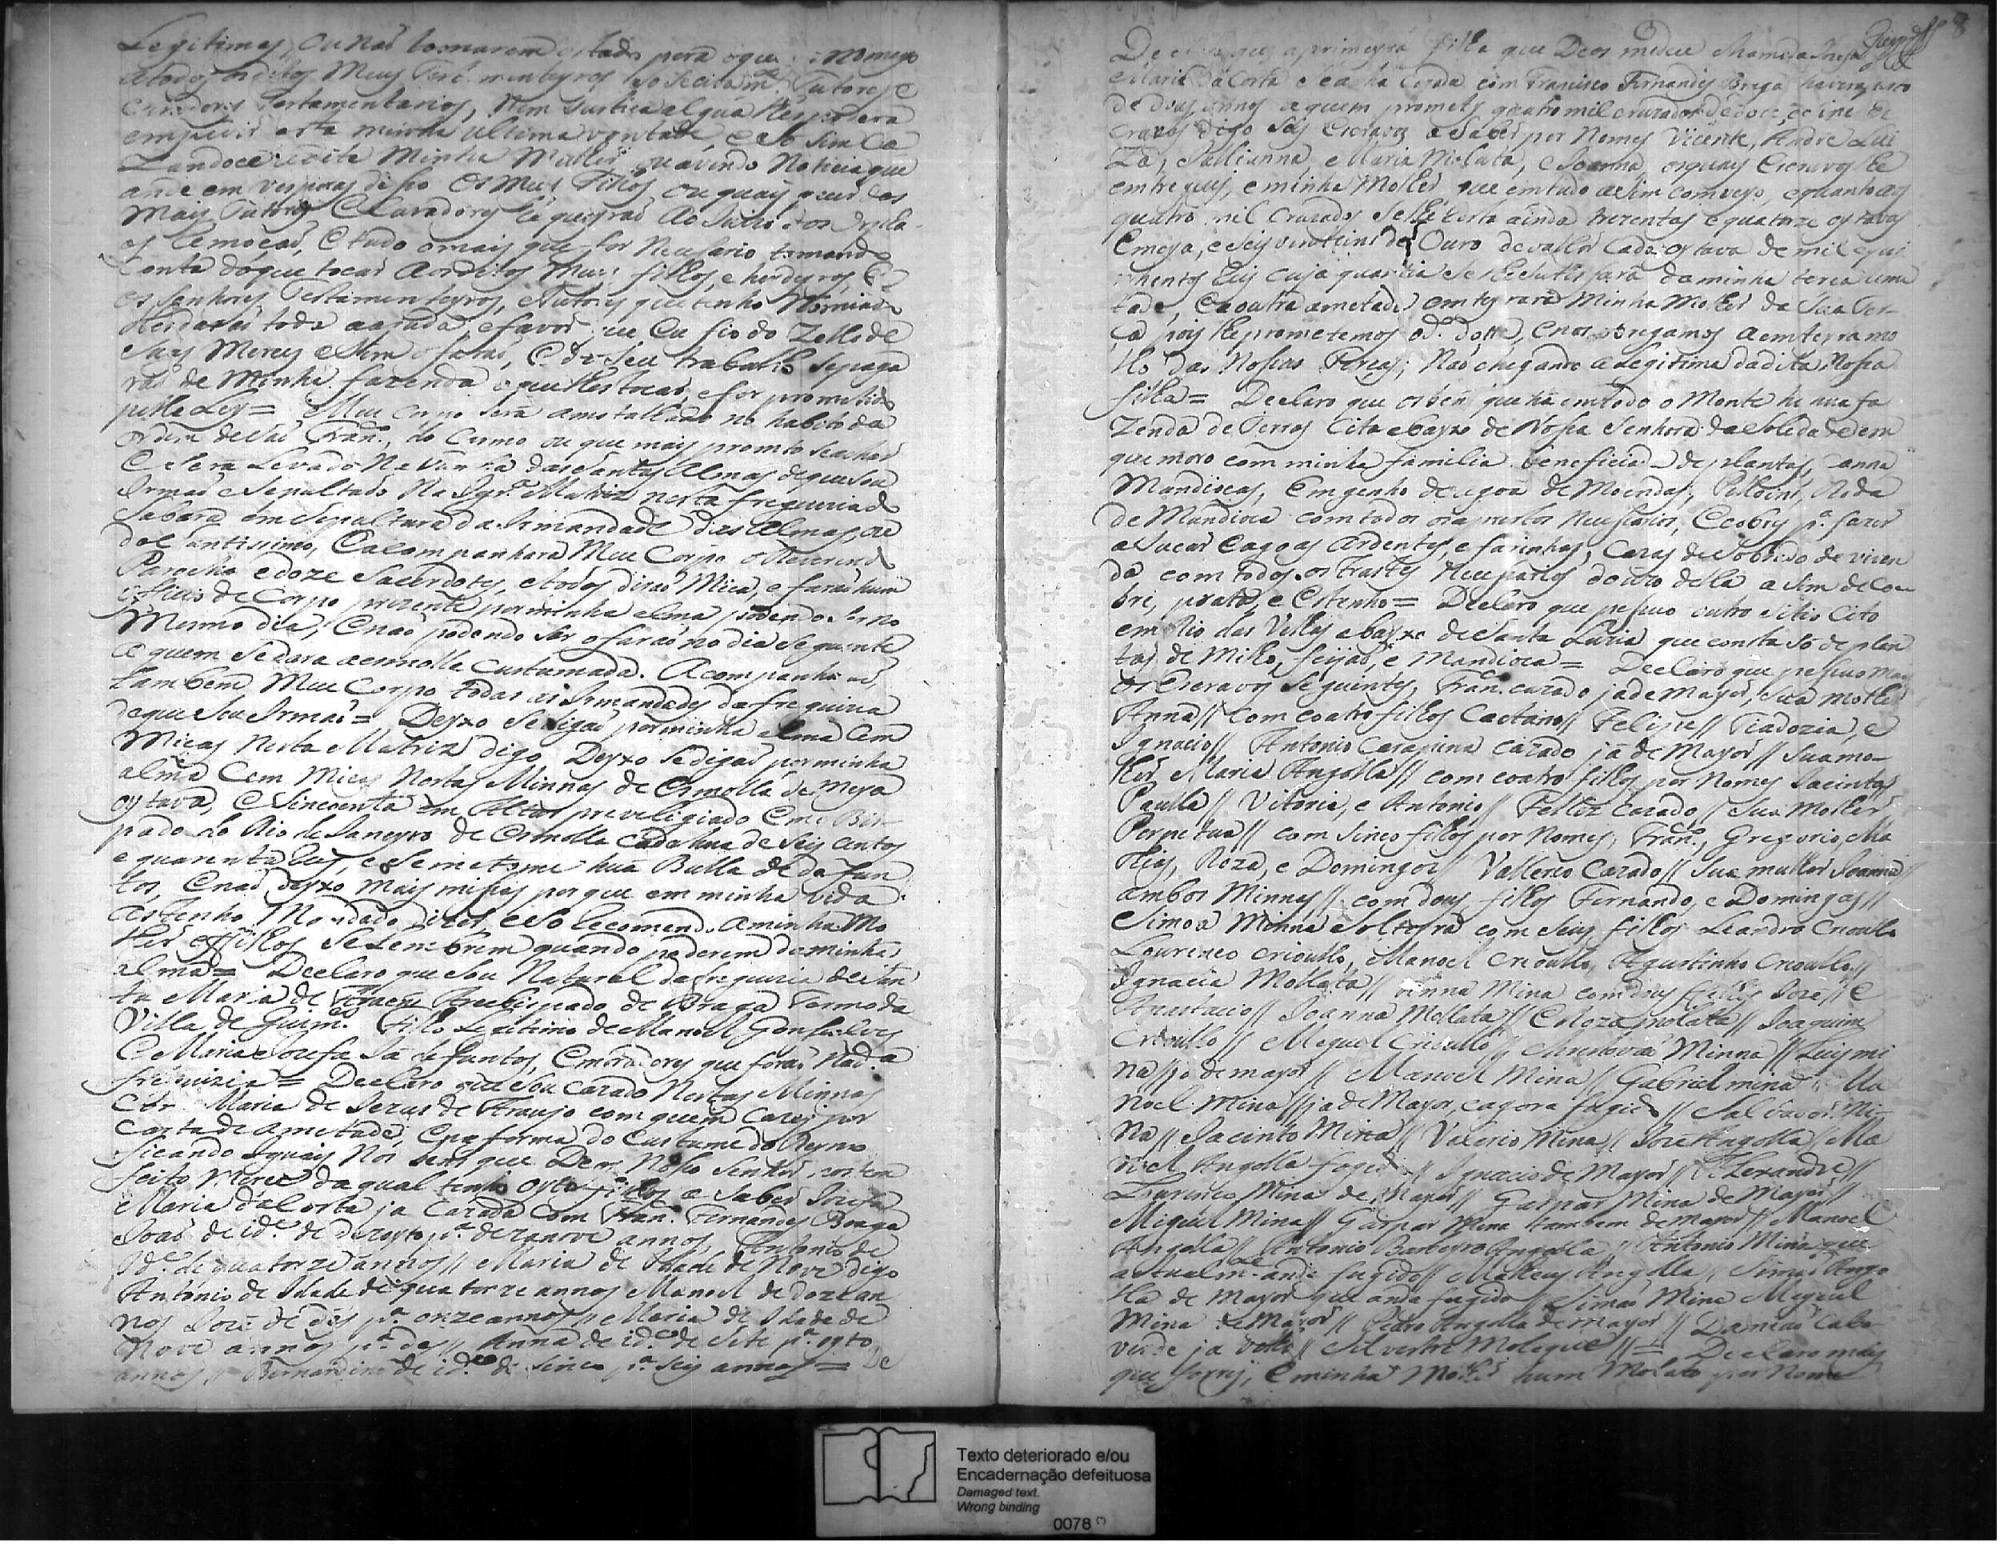 Legitimas, ou não tomarem estado para o que nomeyo
a todos os ditos Meus Tutores e
Testamentarios, Nem Justiça algua
empedir esta minha ultima vontade, e
minha Mulher, ou avendo Noticia que
ande em vesporas disso os meus Filhos
Mais Tutores e Curadores Requeyrão ao Juizo dos Orphãos
e tudo o mais que for Necesario tomando
conta do que tocar aos ditos Meus filhos, e herdeyros, e
os Senhores Testamenteyros, e Tutores que tenho Nomiado
lhe darão toda a ajuda, e favor que Eu fio do Zello de
Suas Merces e Sim o farão, e do Seu trabalho se paga
rá de Minha fazenda o que lhes tocar, e for promitido
pella Ley = Meu Corpo será amortalhado no habito da
ordem de São Fran.co, do Carmo ou que mais promto se achar
e será Levado Na das Santas Almas de que Sou
Irmão e Sepultado Na Igr.a Matriz nesta freguezia de
Sabará em Sepultura da Irmandade das Almas, ou
do Santissimo, e acompanhará Meu Corpo o Reverendo
Parocho e doze Sacerdotes, e todos dirão Miça, e farão hum
officio de Corpo prezente por minha alma podendo Ser no
Mesmo dia, e não podendo Ser o farão no dia Seguinte
a quem Se dara a esmolla custumada. Acompanharão
tambem Meu Corpo todas as Irmandades da freguezia
de que Sou Irmão = Deyxo Se digão por minha alma Cem
Miças Nesta Matriz digo Deyxo Se digão por minha
alma Cem Miças Nestas Minnas de Esmolla de meya
oytava, e Sincoenta em Altar previligiado Em o Bis
pado do Rio de Janeyro de Esmolla cada hua de Seis Centos
e quarenta Reis, e Se me tome hua Bulla de defun
tos, e não deyxo mais missas por que em minha vida
as tenho Mandado dizer e So Recomendo a minha Mo
lher e filhos Se Lembrem quando poderem da minha
alma = Declaro que Sou Natural da freguezia de San
ta Maria de Arcebispado de Braga Termo da
Villa de Guim.es Filho Legitimo de Manoel Gonsalves
e Maria Josefa Já defuntos, e moradores que forão Na d.a
freguizia = Declaro que Sou Cazado Nestas Minnas
Com Maria de Jezus de Araujo com quem Cazey por
Carta de ametade, e na forma do Custume do Reyno
ficando Iguais Nos bens que Deos Nosso Senhor nos tem
feito Merce da qual tenho oyto filhos a Saber Josefa
Maria da Costa ja Cazada com Fran.co Fernandes Braga
João de id.e de dezoyto p.a dezanove annos, Antonio de
Id.e de quatorze annos // Maria de Idade de Nove digo
Antonio de Idade de quatorze annos Manoel de doze an
nos José de dés p.a onze annos // Maria de Idade de
Nove annos p.a des // Anna de id.e de Sete p.a oyto
annos // Bernardino de id.e de Sinco p.a Seis annos = De
8
De que a primeyra filha que Deos me deu chamada Josefa
Maria da Costa está Cazada com Francisco Fernandes Braga haverá
de dous annos a quem promety quatro mil cruzados de dote
cravos digo Seis Escravos a Saber por Nomes Vicente, Andre Lui
za, Jullianna, Maria Molata, e Joanna, os quais Escravos lhe
entreguey, e minha Molher que em tudo asim comveyo, e quanto aos
quatro mil Cruzados Se lhe Resta ainda trezentas e quatorze oytavas
e meya, e Seis vinteins de Ouro de vallor Cada oytava de mil e qui
nhentos Reis cuja quantia Se lhe Satisfará da minha terça ame
tade, e a outra ametade emteyrará Minha Molher da Sua Ter
ça pois lhe prometemos o d.o dotte, e nos obrigamos a emteyra
llo das Nossas Terças; Não chegando a Legitima da dita Nossa
filha = Declaro que os bens que ha em todo o Monte he hua fa
zenda de Terras Cita abayxo de Nossa Senhora da Soledade em
que moro com minha familia beneficiada de plantas, canna
Mandiocas, Emgenho de agoa de Moendas, Roda
de Mandioca com todos os aprestos Necesarios, e cobres p.a fazer
asucar e agoas Ardentes, e farinhas, Cazas de Sobrado de viven
da com todos os trastes Necesarios do uzo della a Sim de Co
bre, prata, e Estanho = Declaro que pesuo outro Sitio Cito
em Rio das Velhas abayxo de Santa Luzia que consta Só de plan
tas de Milho, feijão, e Mandioca = Declaro que pesuo mais
os Escravos Seguintes, Fran.co cazado ja de mayor, Sua molher
Anna // com coatro filhos Caetano // Felipe // Tiadozia, e
Ignacio // Antonio Carapina cazado ja de Mayor // Sua mo
lher Maria Angolla // com coatro filhos por Nomes Jacinta
Paulla // Vitoria, e Antonio // Felliz Cazado // Sua Molher
Perpetua // com Sinco filhos por Nomes, Fran.co, Gregorio, Ma
thias, Roza, e Domingos // Vallerio Cazado // Sua mulher Joanna
ambos Minnas // com dous filhos Fernando, e Domingas //
Simoa Minna Solteyra com Seis filhos Leandro Crioulo
Lourenço crioullo, Manoel Crioullo, Agustinho Crioullo //
Ignacia Mollata // Anna Mina com dous filhos José // e
Anastacio // Joanna Mollata // e Roza molata // Joaquim
Crioullo // Miguel Crioullo // Minna // Luis mi
na // ja de mayor // Manoel Mina // Gabriel mina // Ma
noel Mina // ja de Mayor, e agora fugido // Salvador Mi
na // Jacinto Mina // Valerio Mina // José Angolla // Ma
noel Angolla fugido // Ignacio de Mayor // Alexandre //
Lourenço Mina de Mayor // Gaspar Mina de Mayor //
Miguel Mina // Gaspar Mina tambem de mayor // Manoel
Angolla // Antonio Barbeyro Angolla // Antonio Mina que
actualm.te anda fugido // Matheus Angolla // Simão Ango
lla de Mayor que anda fugido // Simão Mina Miguel
Mina de Mayor // Pedro Angolla de mayor // Damião Cabo
verde ja velho // Silvestre Moleque // = Declaro mais
que forrey, e minha Molher hum Molato por Nome
Texto deteriorado e/ou
Encadernação defeituosa
Damaged text.
Wrong binding
0078 (*)